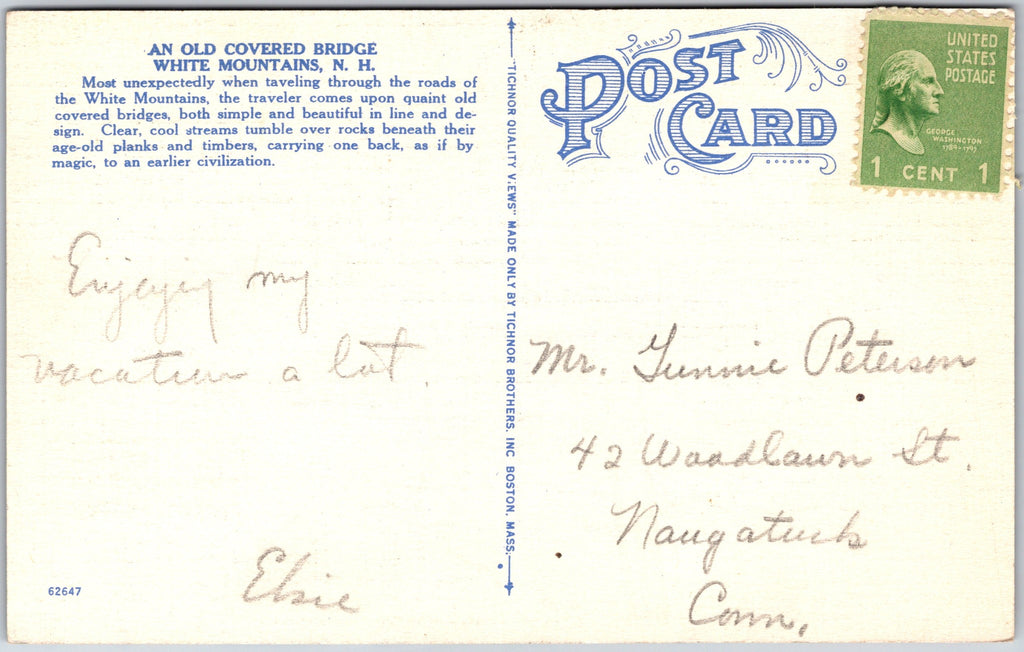 AN OLD COVERED BRIDGE
WHITE MOUNTAINS, N. H.
Most unexpectedly when taveling through the roads of
the White Mountains, the traveler comes upon quaint old
covered bridges, both simple and beautiful in line and de-
sign. Clear, cool streams tumble over rocks beneath their
age-old planks and timbers, carrying one back, as if by
magic, to an earlier civilization.
Enjoying my
vacation a lot.
Elsie
62647
"TICHNOR QUALITY VIEWS" MADE ONLY BY TICHNOR BROTHERS, INC BOSTON, MASS.
POST
CARD
UNITED
STATES
POSTAGE
GEORGE
WASHINGTON
1789-1797
1 CENT 1
Mr. Gunnie Peterson
42 Woodlawn St.
Naugatuck
Conn.